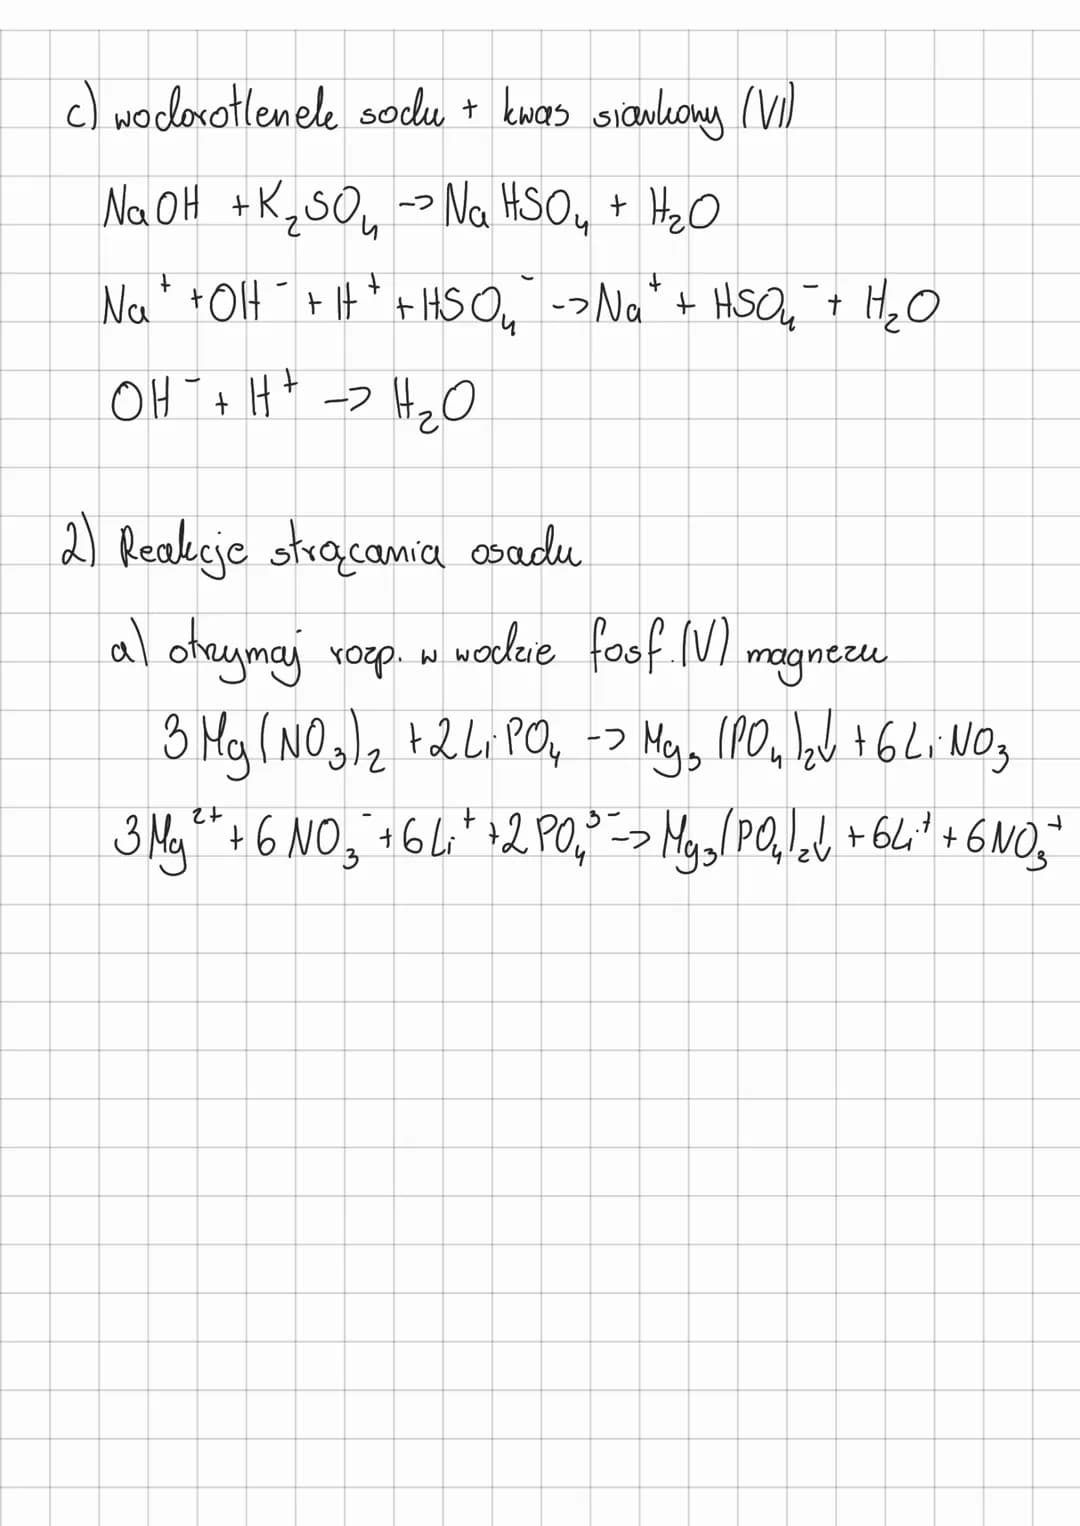 c) wodorotlenek sodu + kwas siarkowy (VI)
NaOH + K₂SO₄ -> NaHSO₄ + H₂O
Na⁺ + OH⁻ + H⁺ + HSO₄⁻ -> Na⁺ + HSO₄⁻ + H₂O
OH⁻ + H⁺ -> H₂O
2) Reakcje strącania osadu
a) otrzymaj rozp. w wodzie fosf. (V) magnezu
3Mg(NO₃)₂ + 2LiPO₄ -> Mg₃(PO₄)₂↓ + 6LiNO₃
3Mg²⁺ + 6NO₃⁻ + 6Li⁺ + 2PO₄³⁻ -> Mg₃(PO₄)₂↓ + 6Li⁺ + 6NO₃⁺